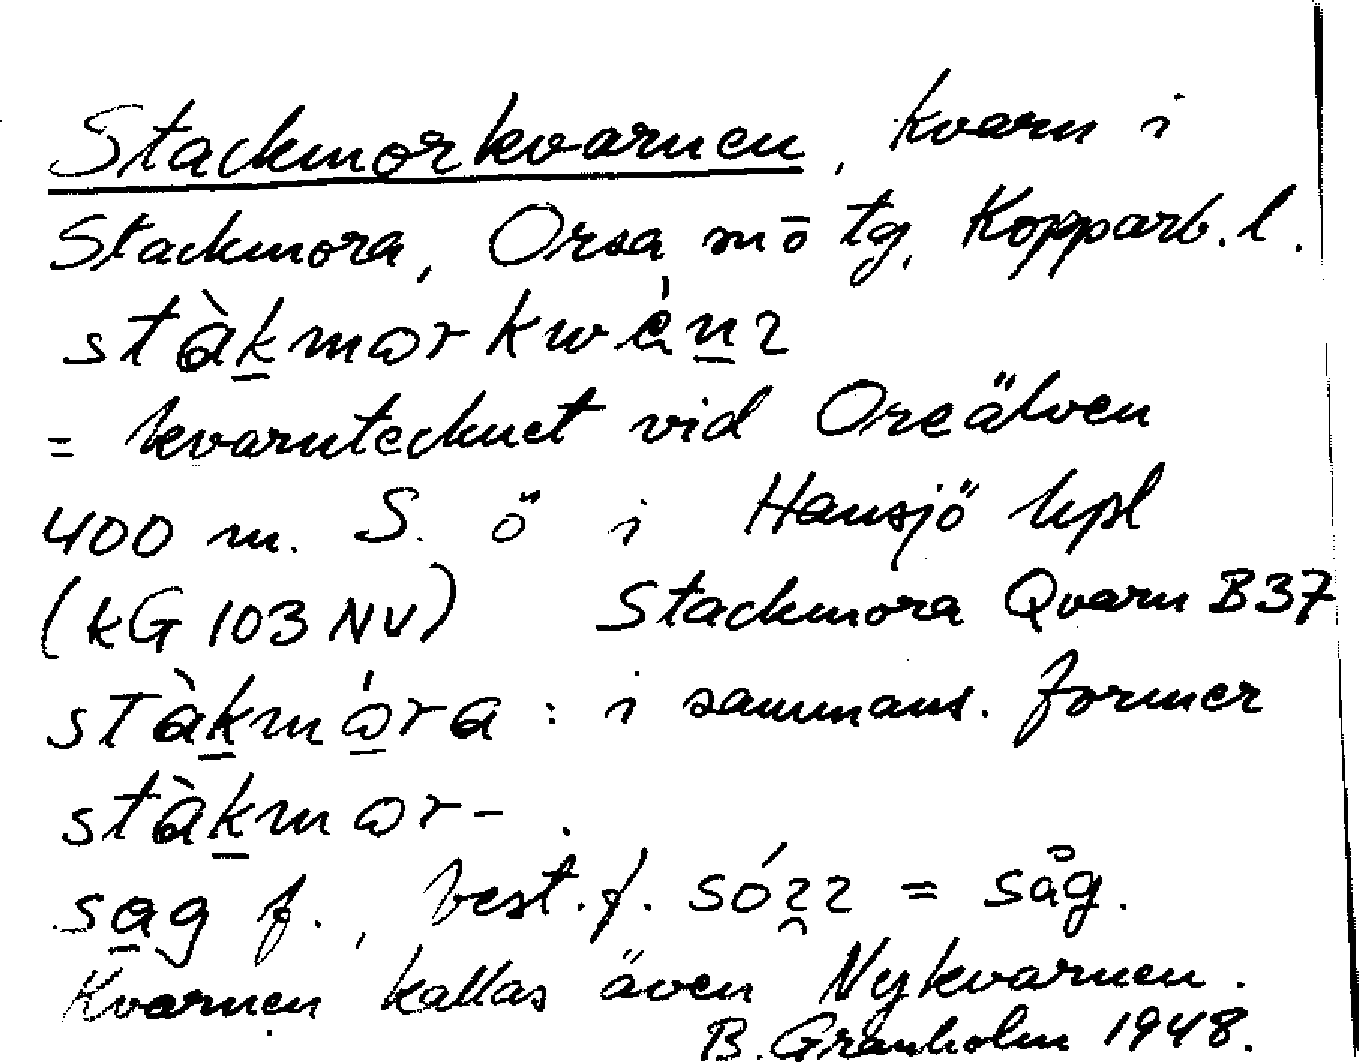 Stackmorkvarnen, kvarn i
Stackmora, Orsa sn ö tg, Kopparb. l.
stàkmar kwǽnɿ
= kvarntecknet vid Oreälven
400 m. S. ö i Hansjö hpl
(kG 103 NV) Stackmora Qvarn B37
stàkmára : i sammans. former
stàkmar- .
sag f., best. f. sóɿɿ = såg.
Kvarnen kallas även Nykvarnen.
B. Granholm 1948.